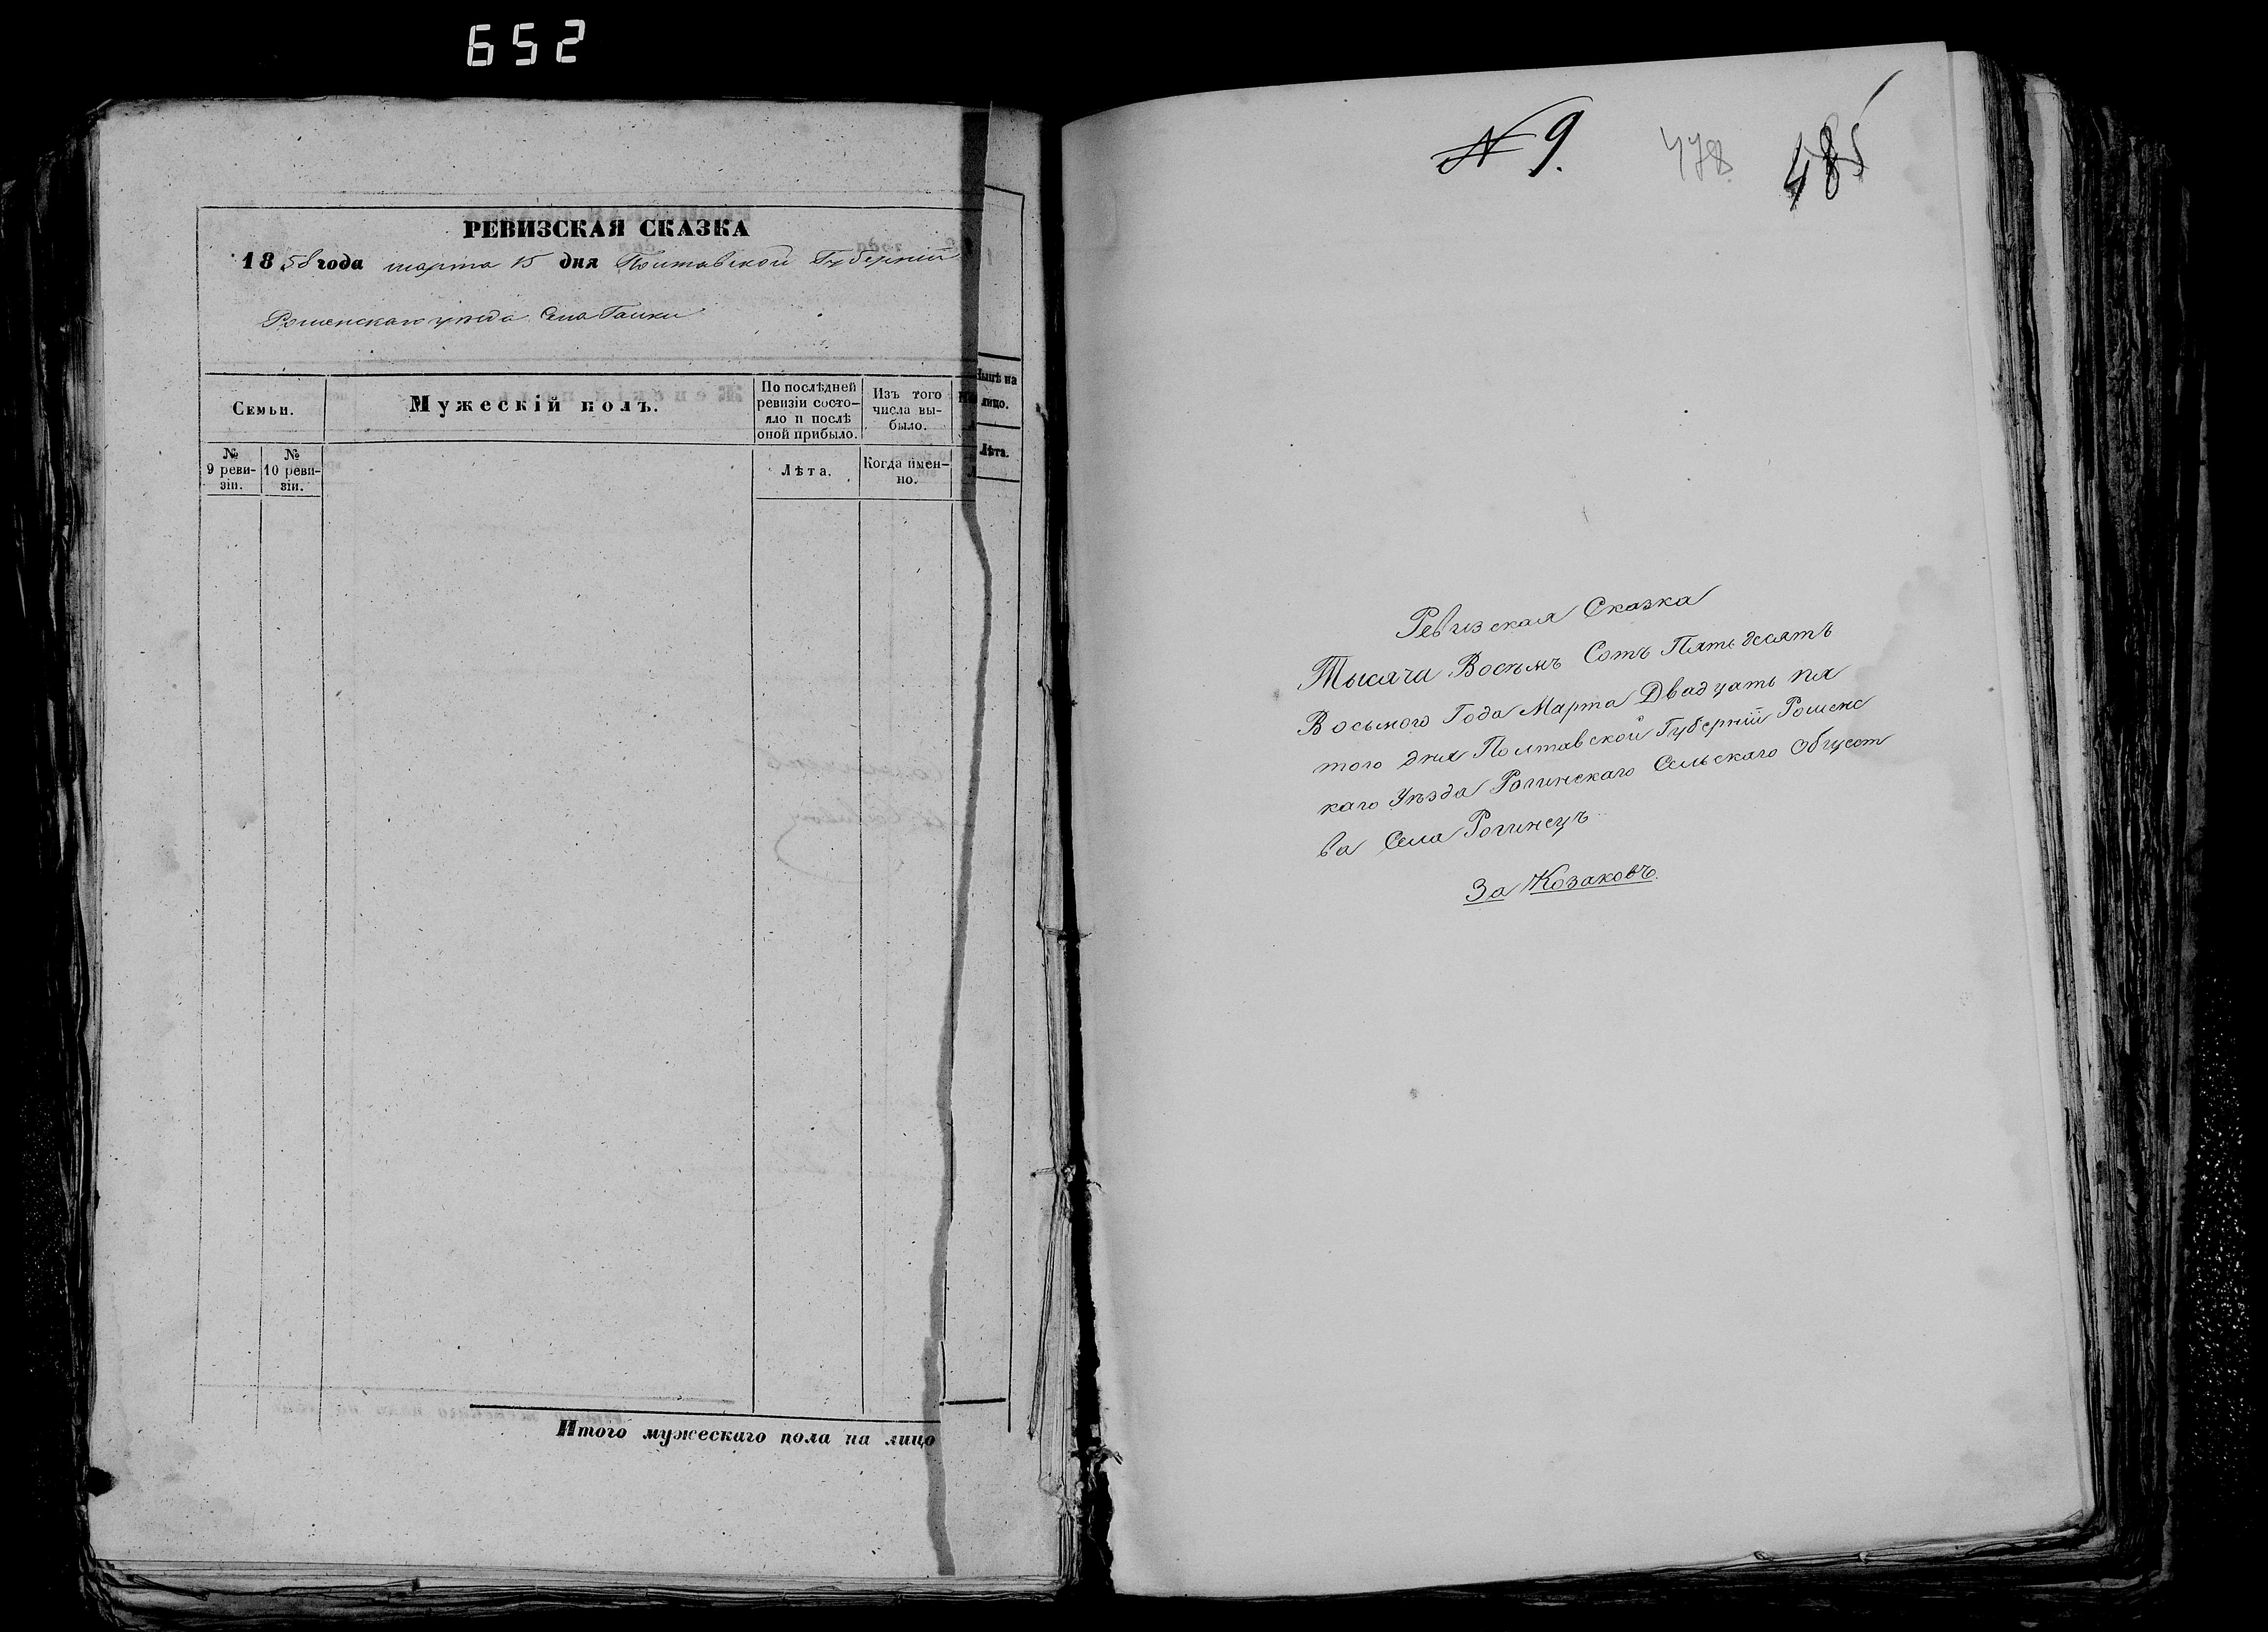 652
РЕВИЗСКАЯ СКАЗКА
1858 года марта 15 дня Полтавской Губерніи
Роменскаго уезда Села Гаики
Семьи.
Мужескій полъ.
По послѣдней ревизіи состо-
яло и послѣ
оной прибыло.
Изъ того
числа вы-
было.
Нынѣ на
лицо.
№
9 реви-
зіи.
№
10 реви-
зіи.
Лѣта.
Когда имен-
но.
Лѣта.
Итого мужескаго пола на лицо
№ 9.
478
485
Ревизская Сказка
Тысяча Восемъ Сотъ Пятьдесятъ
Восьмого Года Марта Двадцать пя
того дня Полтавской Губерніи Роменс
каго Уѣзда Рогинскаго Сельскаго Общест
ва Села Рогинецъ
За Козаковъ.